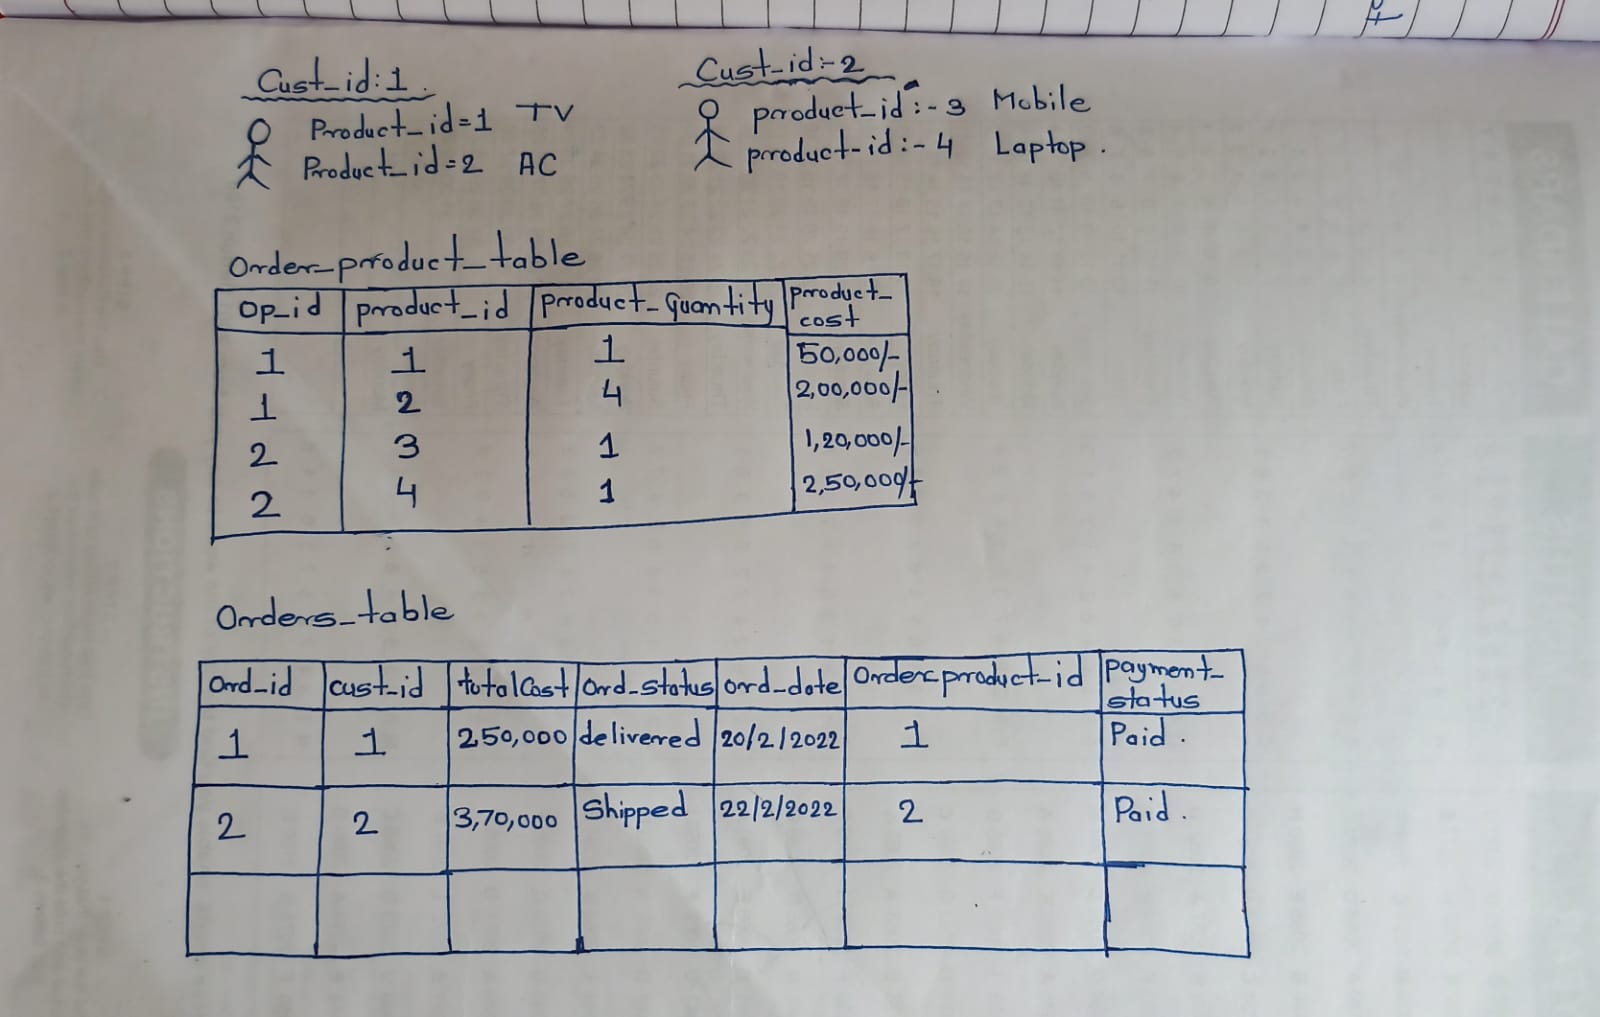 Cust_id:1.
Product_id=1 TV
Product_id=2 AC
Cust_id:-2
product_id:-3 Mobile
product-id:-4 Laptop.
Order_product_table
Op_id product_id product_Quantity product_cost
1 1 1 50,000/-
1 2 4 2,00,000/-
2 3 1 1,20,000/-
2 4 1 2,50,000/-
Orders_table
Ord_id cust_id totalCost Ord_status ord_date Order_product_id payment_status
1 1 250,000 delivered 20/2/2022 1 Paid.
2 2 3,70,000 Shipped 22/2/2022 2 Paid.